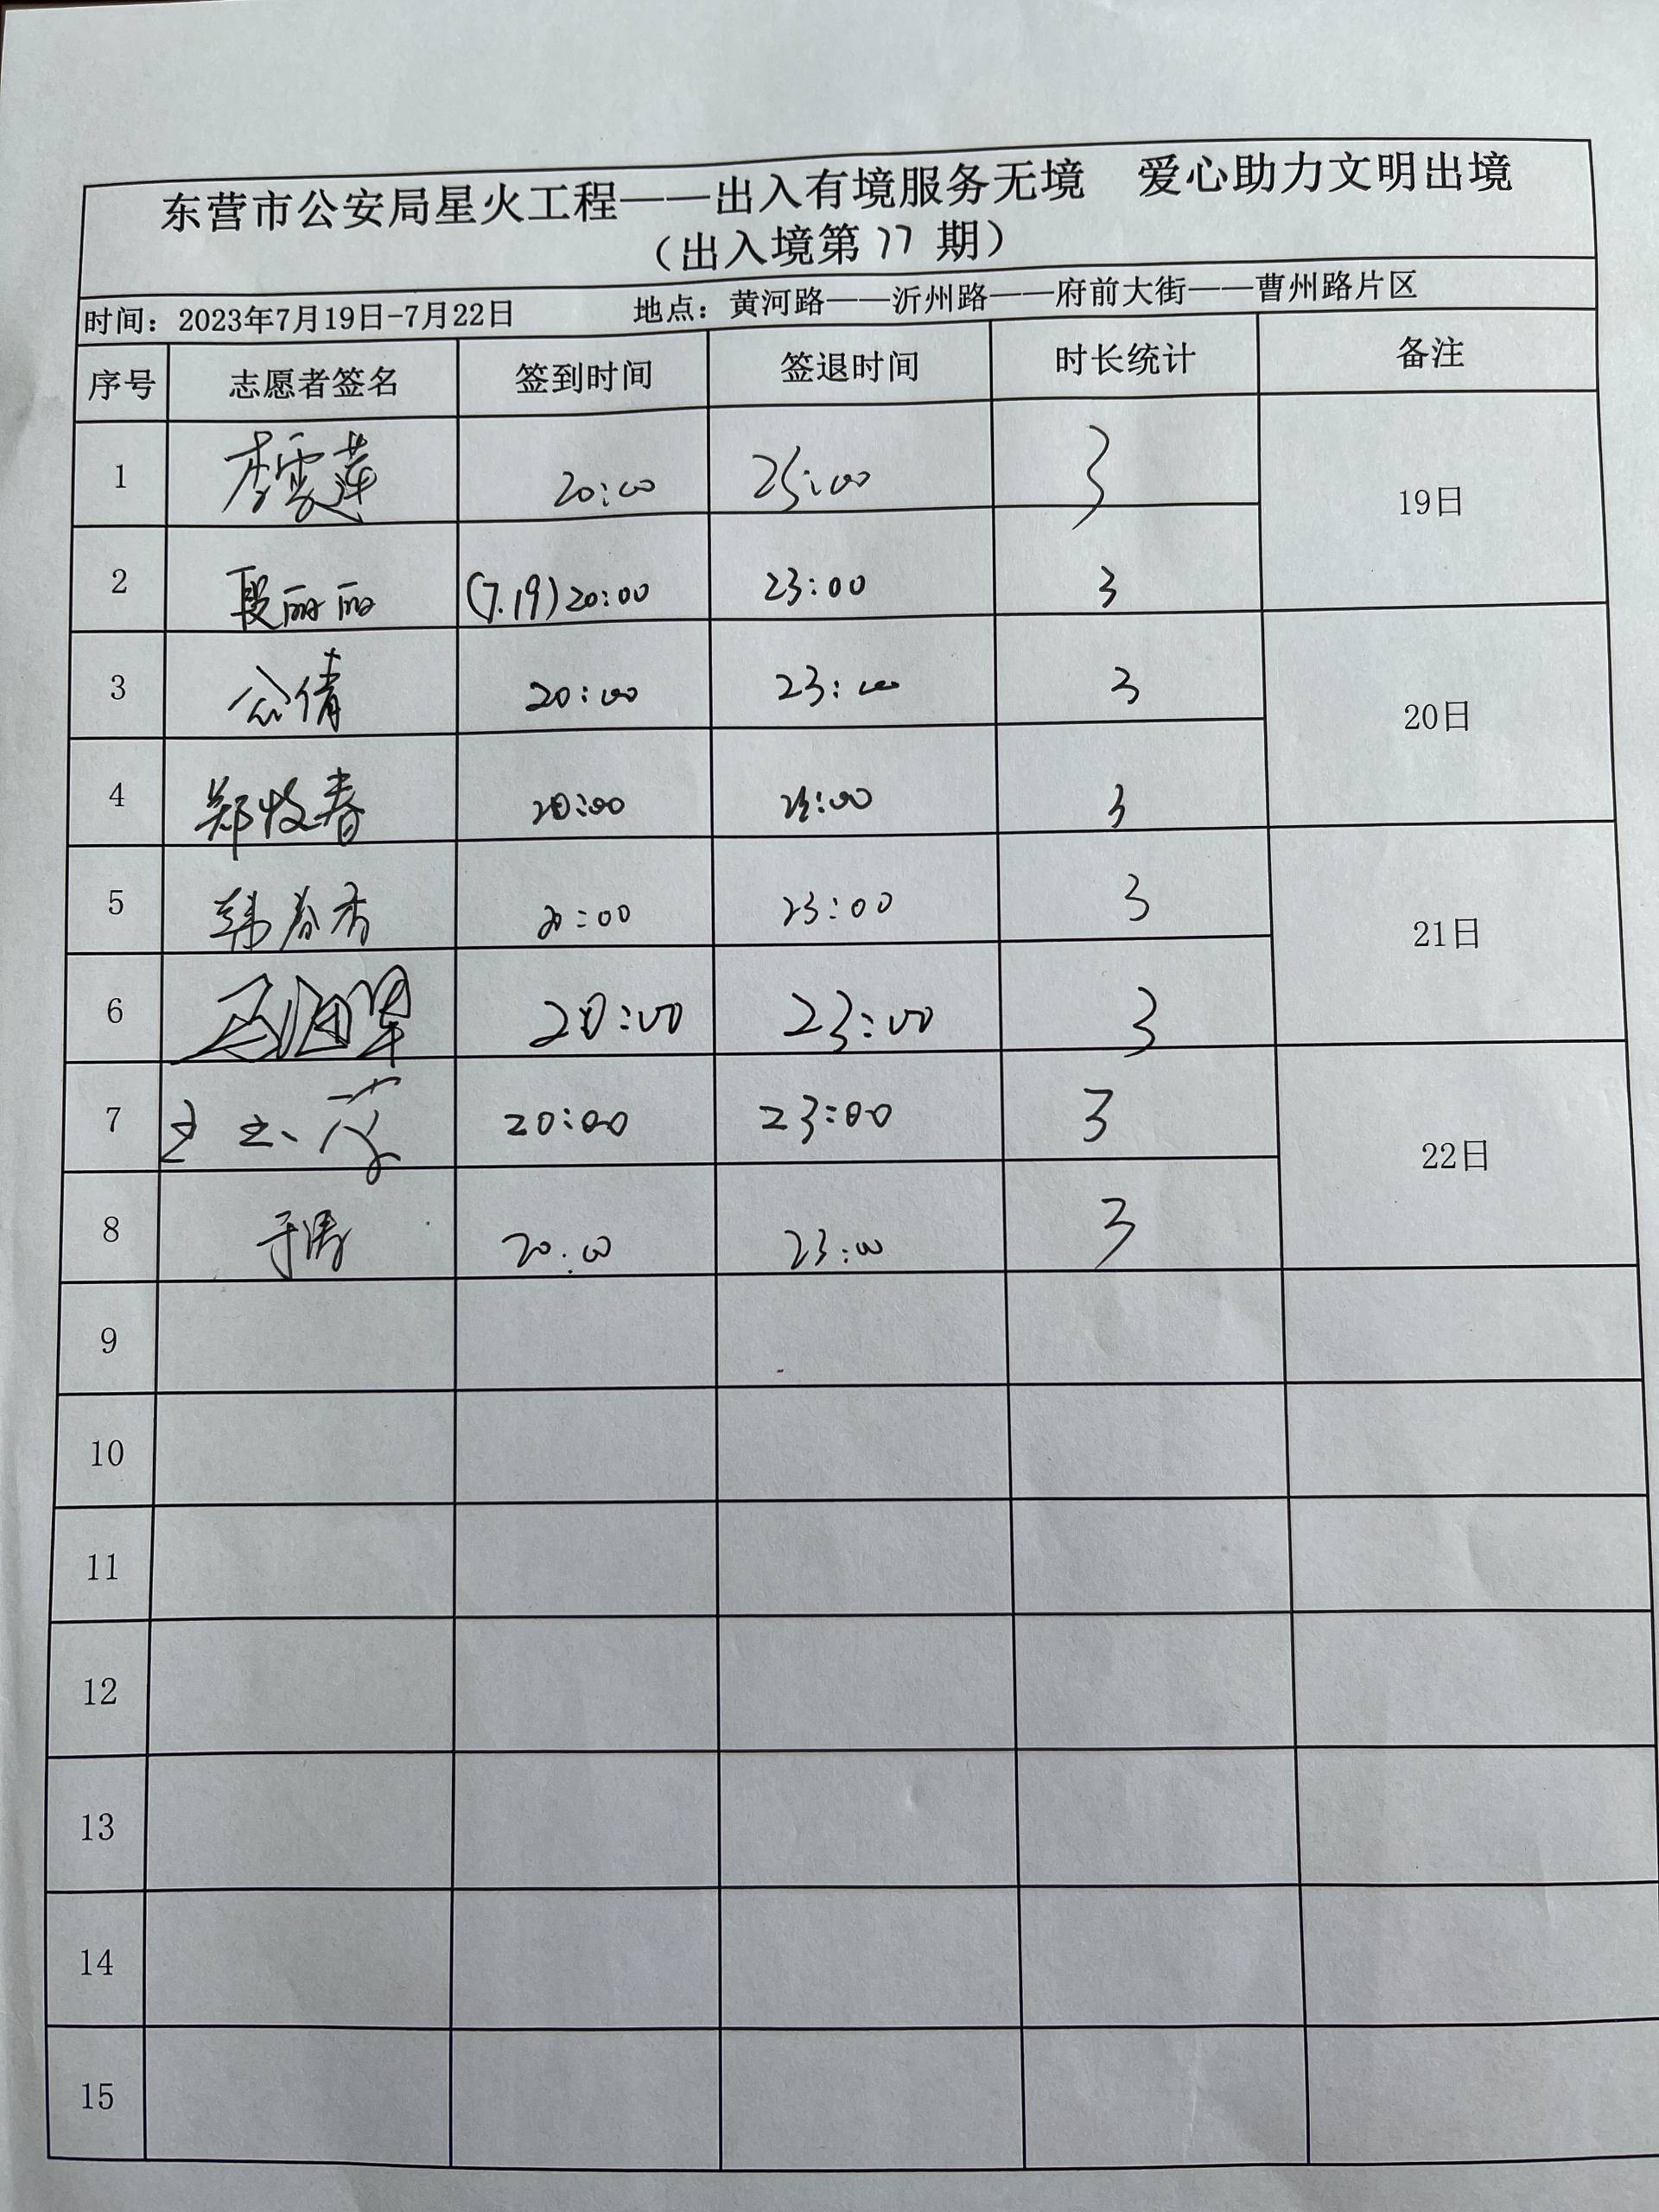 东营市公安局星火工程——出入有境服务无境 爱心助力文明出境
（出入境第 77 期）
时间：2023年7月19日-7月22日 地点：黄河路——沂州路——府前大街——曹州路片区
序号 志愿者签名 签到时间 签退时间 时长统计 备注
1 李雪莲 20:00 23:00 3 19日
2 段丽丽 (7.19)20:00 23:00 3
3 公倩 20:00 23:00 3 20日
4 郑 春 20:00 23:00 3
5 韩春香 20:00 23:00 3 21日
6 20:00 23:00 3
7 20:00 23:00 3 22日
8 于涛 20:00 23:00 3
9
10
11
12
13
14
15